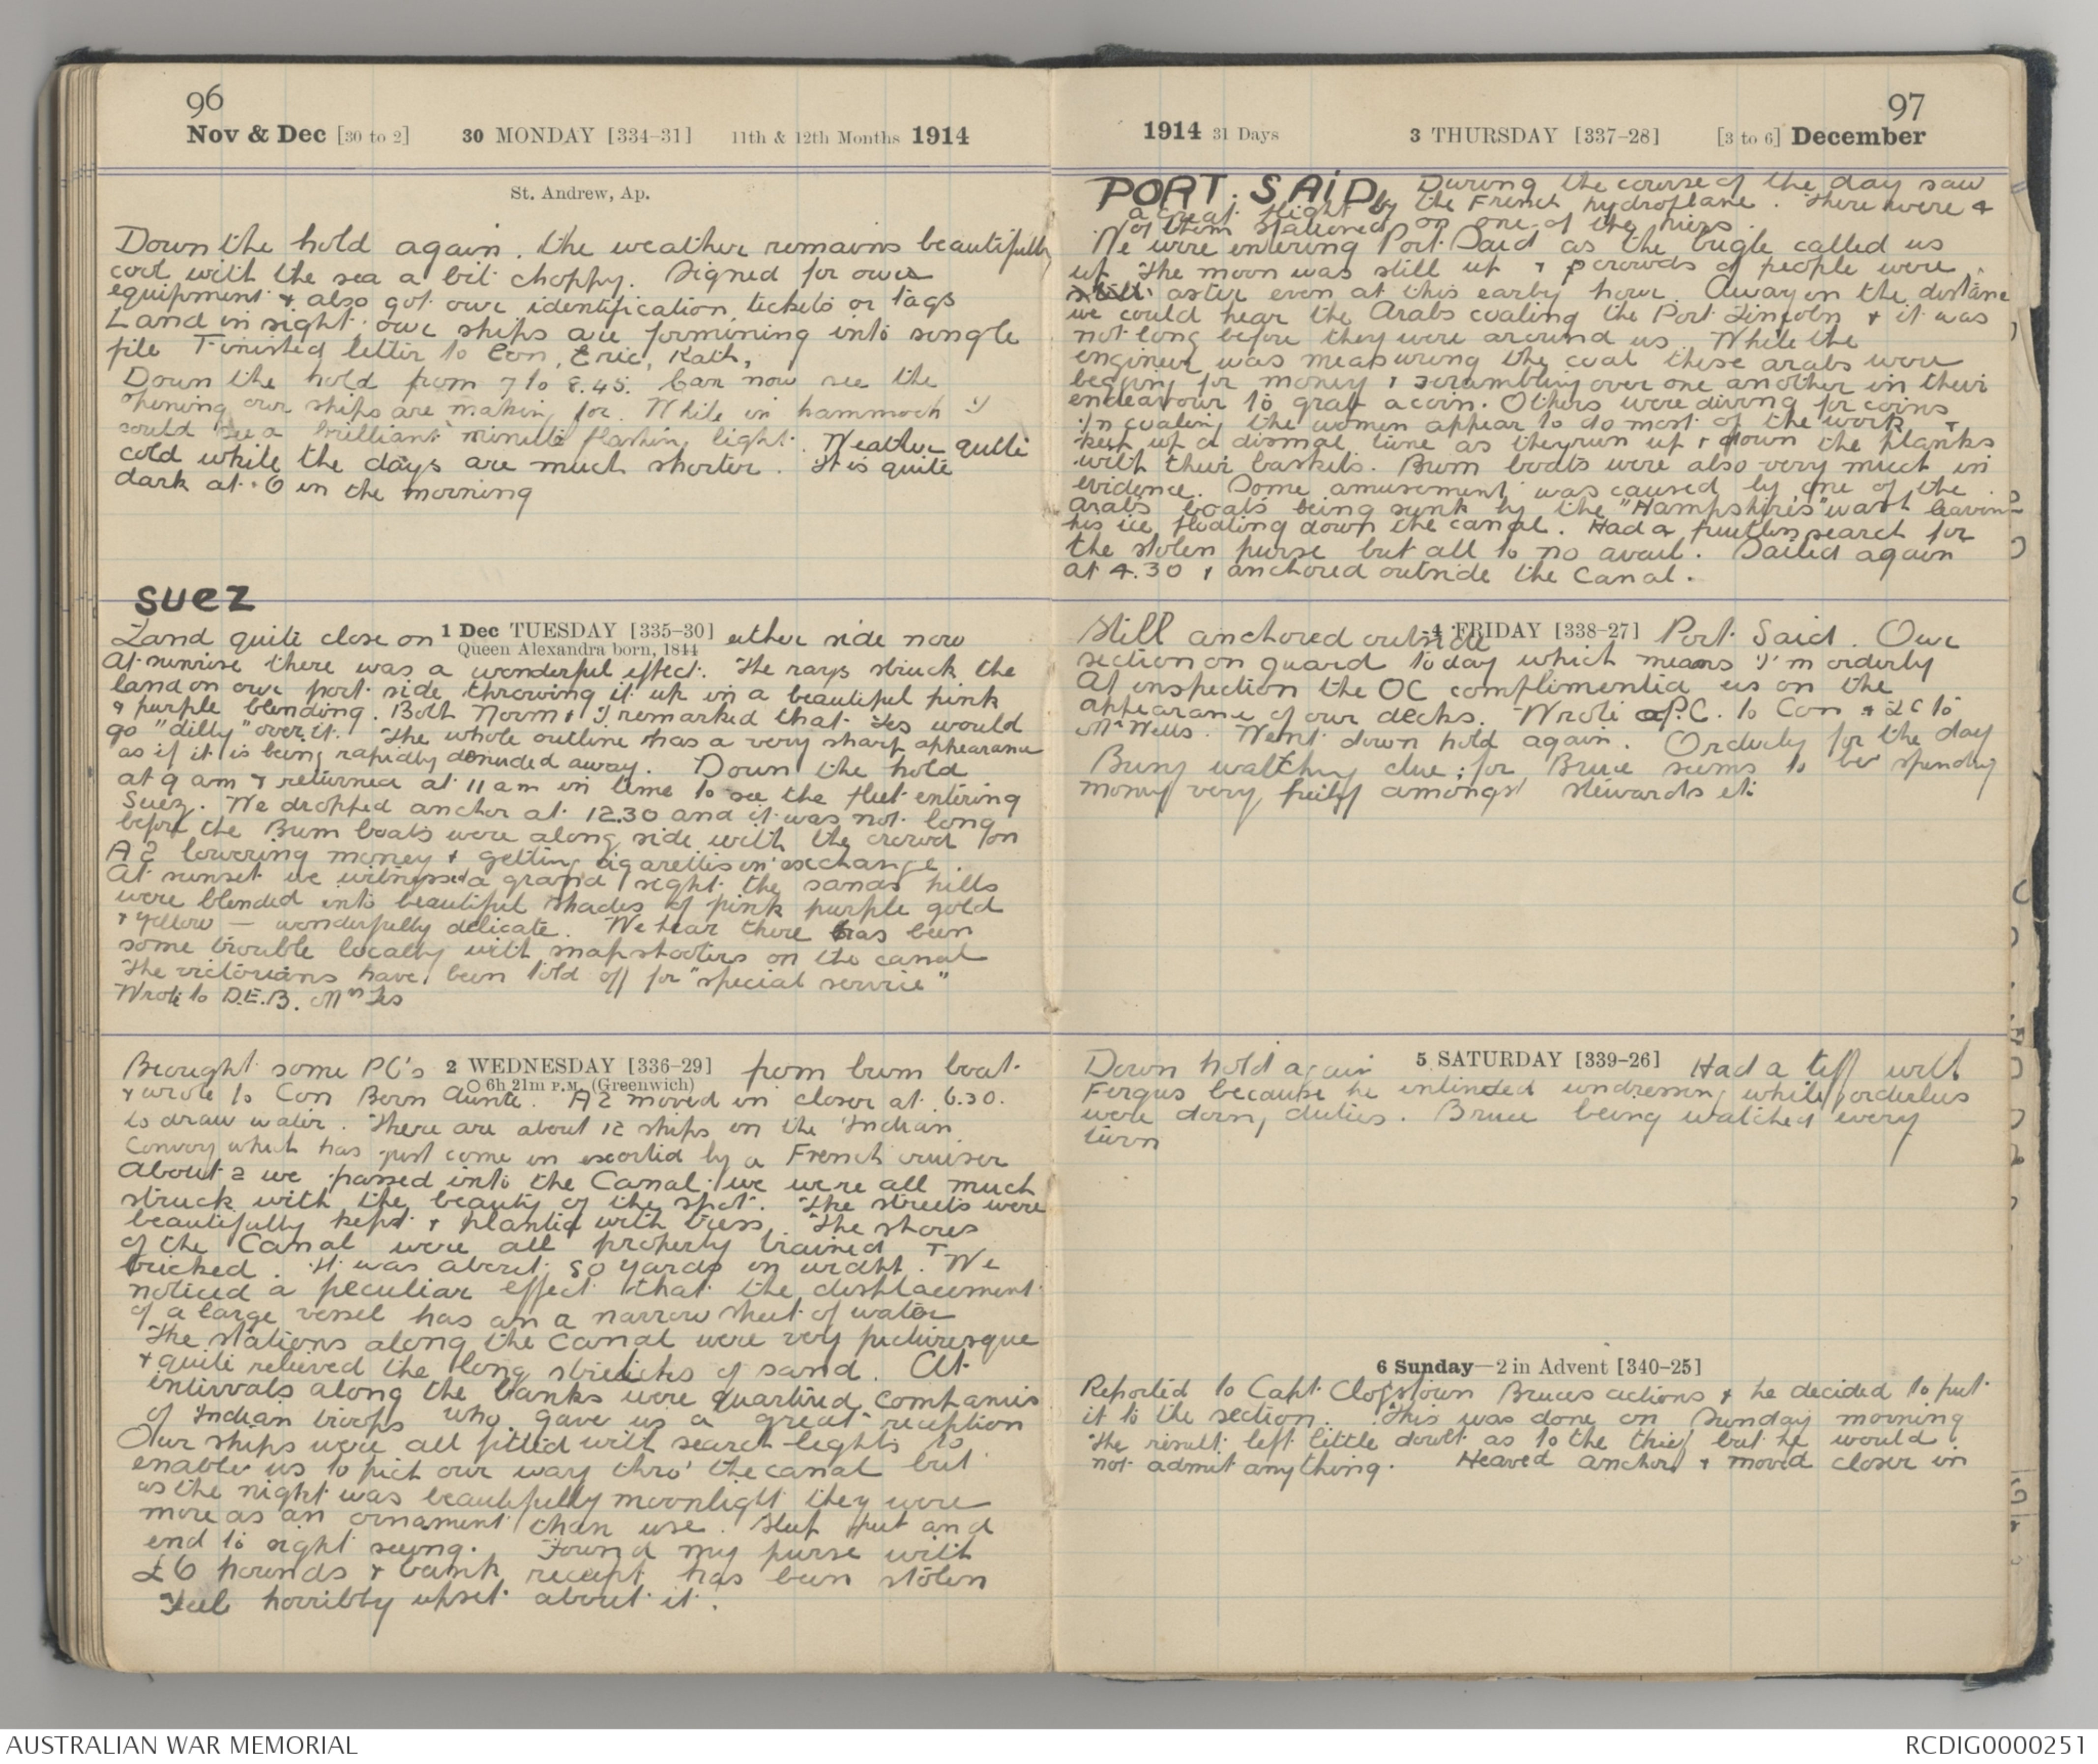 96
Nov & Dec [30 to 2] 30 MONDAY [334-31] 11th & 12th Months 1914
St. Andrew, Ap.
Down the hold again. The weather remains beautifully
cool with the sea a bit choppy. Signed for our
equipment & also got our identification tickets or tags
Land in sight. our ships are formining into single
file Finished letter to Con, Eric, Kath,
Down the hold from 7 to 8.45. Can now see the
opening our ships are making for. While in hammock I
could see a brilliant minute flashing light. Weather quite
cold while the days are much shorter. It is quite
dark at 6 in the morning
SUEZ
1 Dec TUESDAY [335-30]
Queen Alexandra born, 1844
Land quite close on either side now
At sunrise there was a wonderful effect. The rays struck the
land on our port side throwing it up in a beautiful pink
& purple blending. Both Norm & I remarked that Les would
go "dilly" over it. The whole outline has a very sharp appearance
as if it is being rapidly denuded away. Down the hold
at 9 am & returned at 11 am in time to see the fleet entering
Suez. We dropped anchor at 12.30 and it was not long
before the Bum boats were along side with the crowd on
A2 lowering money & getting cigarettes in exchange.
At sunset we witnessed a grand sight the sands hills
were blended into beautiful shades of pink purple gold
& yellow — wonderfully delicate. We hear there has been
some trouble locally with snapshooters on the canal
The victorians have been told off for "special service"
Wrote to D.E.B. Mrs Les
2 WEDNESDAY [336-29]
6h 21m P.M. (Greenwich)
Brought some PC's from bum boat
& wrote to Con Bern Auntie. A2 moved in closer at 6.30.
to draw water. There are about 12 ships in the Indian
Convoy which has just come in escorted by a French cruiser
About 2 we passed into the Canal. we were all much
struck with the beauty of the spot. The streets were
beautifully kept & planted with trees. The shores
of the Canal were all properly trained &
bricked. It was about 80 yards in width. We
noticed a peculiar effect that the displacement
of a large vessel has on a narrow sheet of water
The stations along the canal were very picturesque
& quite relieved the long stretches of sand. At
intervals along the banks were quartired companies
of Indian troops who gave us a great reception
Our ships were all fitted with search lights to
enable us to pick our way thro' the canal but
as the night was beautifully moonlight they were
more as an ornament than use. Sleep put and
end to sight seeing. Found my purse with
£6 pounds & bank receipt has been stolen
Feel horribly upset about it.
97
1914 31 Days 3 THURSDAY [337-28] [3 to 6] December
PORT. SAID. During the course of the day saw
a great flight by the French hydroplane. There were 4
of them stationed on one of the piers.
We were entering Port Said as the bugle called us
up. The moon was still up & crowds of people were
still astir even at this early hour. Away in the distance
we could hear the Arabs coaling the Port Lincoln & it was
not long before they were around us. While the
engineer was measuring the coal these arabs were
begging for money & scrambling over one another in their
endeavour to grab a coin. Others were diving for coins
In coaling the women appear to do most of the work &
keep up a dismal tune as they run up & down the planks
with their baskets. Bum boats were also very much in
evidence. Some amusement was caused by one of the
Arabs boats being sunk by the "Hampshire's" wash leaving
his ice floating down the canal. Had a fruitless search for
the stolen purse but all to no avail. Sailed again
at 4.30 & anchored outside the Canal.
4 FRIDAY [338-27]
Still anchored outside Port Said. Our
section on guard today which means I'm orderly
At inspection the OC complimented us on the
appearance of our decks. Wrote a P.C. to Con & to
Mr Wells. Went down hold again. Orderly for the day
Busy watching clue; for Bruce seems to be spending
money very freely amongst stewards etc
5 SATURDAY [339-26]
Down hold again Had a tiff with
Fergus because he intended undressing while orderlies
were doing duties. Bruce being watched every
turn
6 Sunday—2 in Advent [340-25]
Reported to Capt. Clogstown Bruces actions & he decided to put
it to the section. This was done on Sunday morning
The result left little doubt as to the thief but he would
not admit anything. Heaved anchor & moved closer in
AUSTRALIAN WAR MEMORIAL
RCDIG0000251